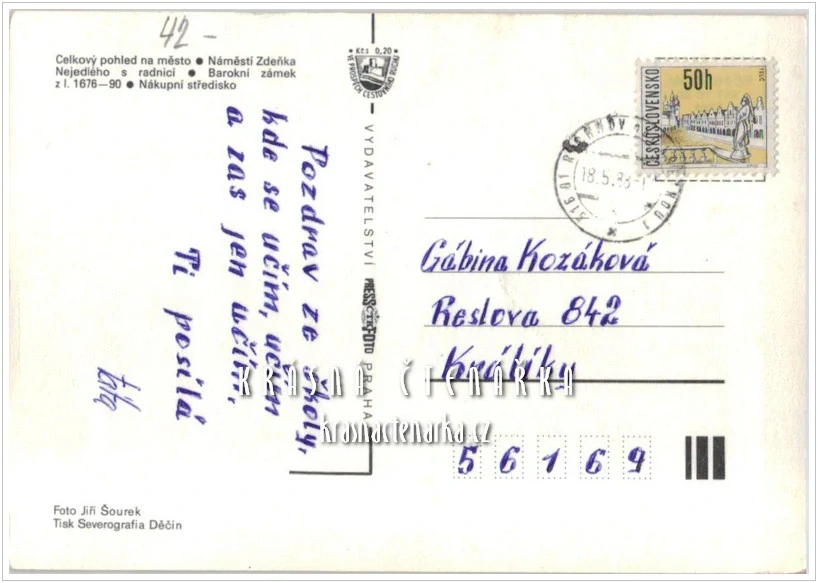 42 -
Celkový pohled na město ● Náměstí Zdeňka
Nejedlého s radnicí ● Barokní zámek
z l. 1676—90 ● Nákupní středisko
Kčs 0,20
VE PROSPĚCH CESTOVNÍHO RUCHU
Pozdrav ze školy,
kde se učím, učím
a zas jen učím,
Ti posílá
VYDAVATELSTVÍ PRESSFOTO PRAHA
ČESKOSLOVENSKO
50h
516 01 RYCHNOV
18.5.88
Gábina Kozáková
Reslova 842
Králíky
56169
KRÁSNÁ ČTENÁŘKA
krasnactenarka.cz
Foto Jiří Šourek
Tisk Severografia Děčín